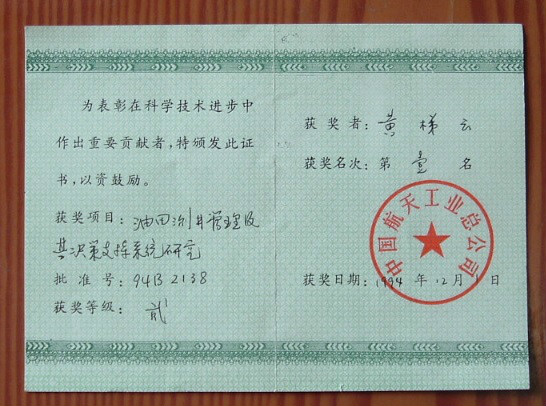 为表彰在科学技术进步中
作出重要贡献者，特颁发此证
书，以资鼓励。
获奖项目：油田测井管理及
其决策支持系统研究
批准号：94B2138
获奖等级：贰
获奖者：黄梯云
获奖名次：第壹名
中国航天工业总公司
获奖日期：1994年12月 日